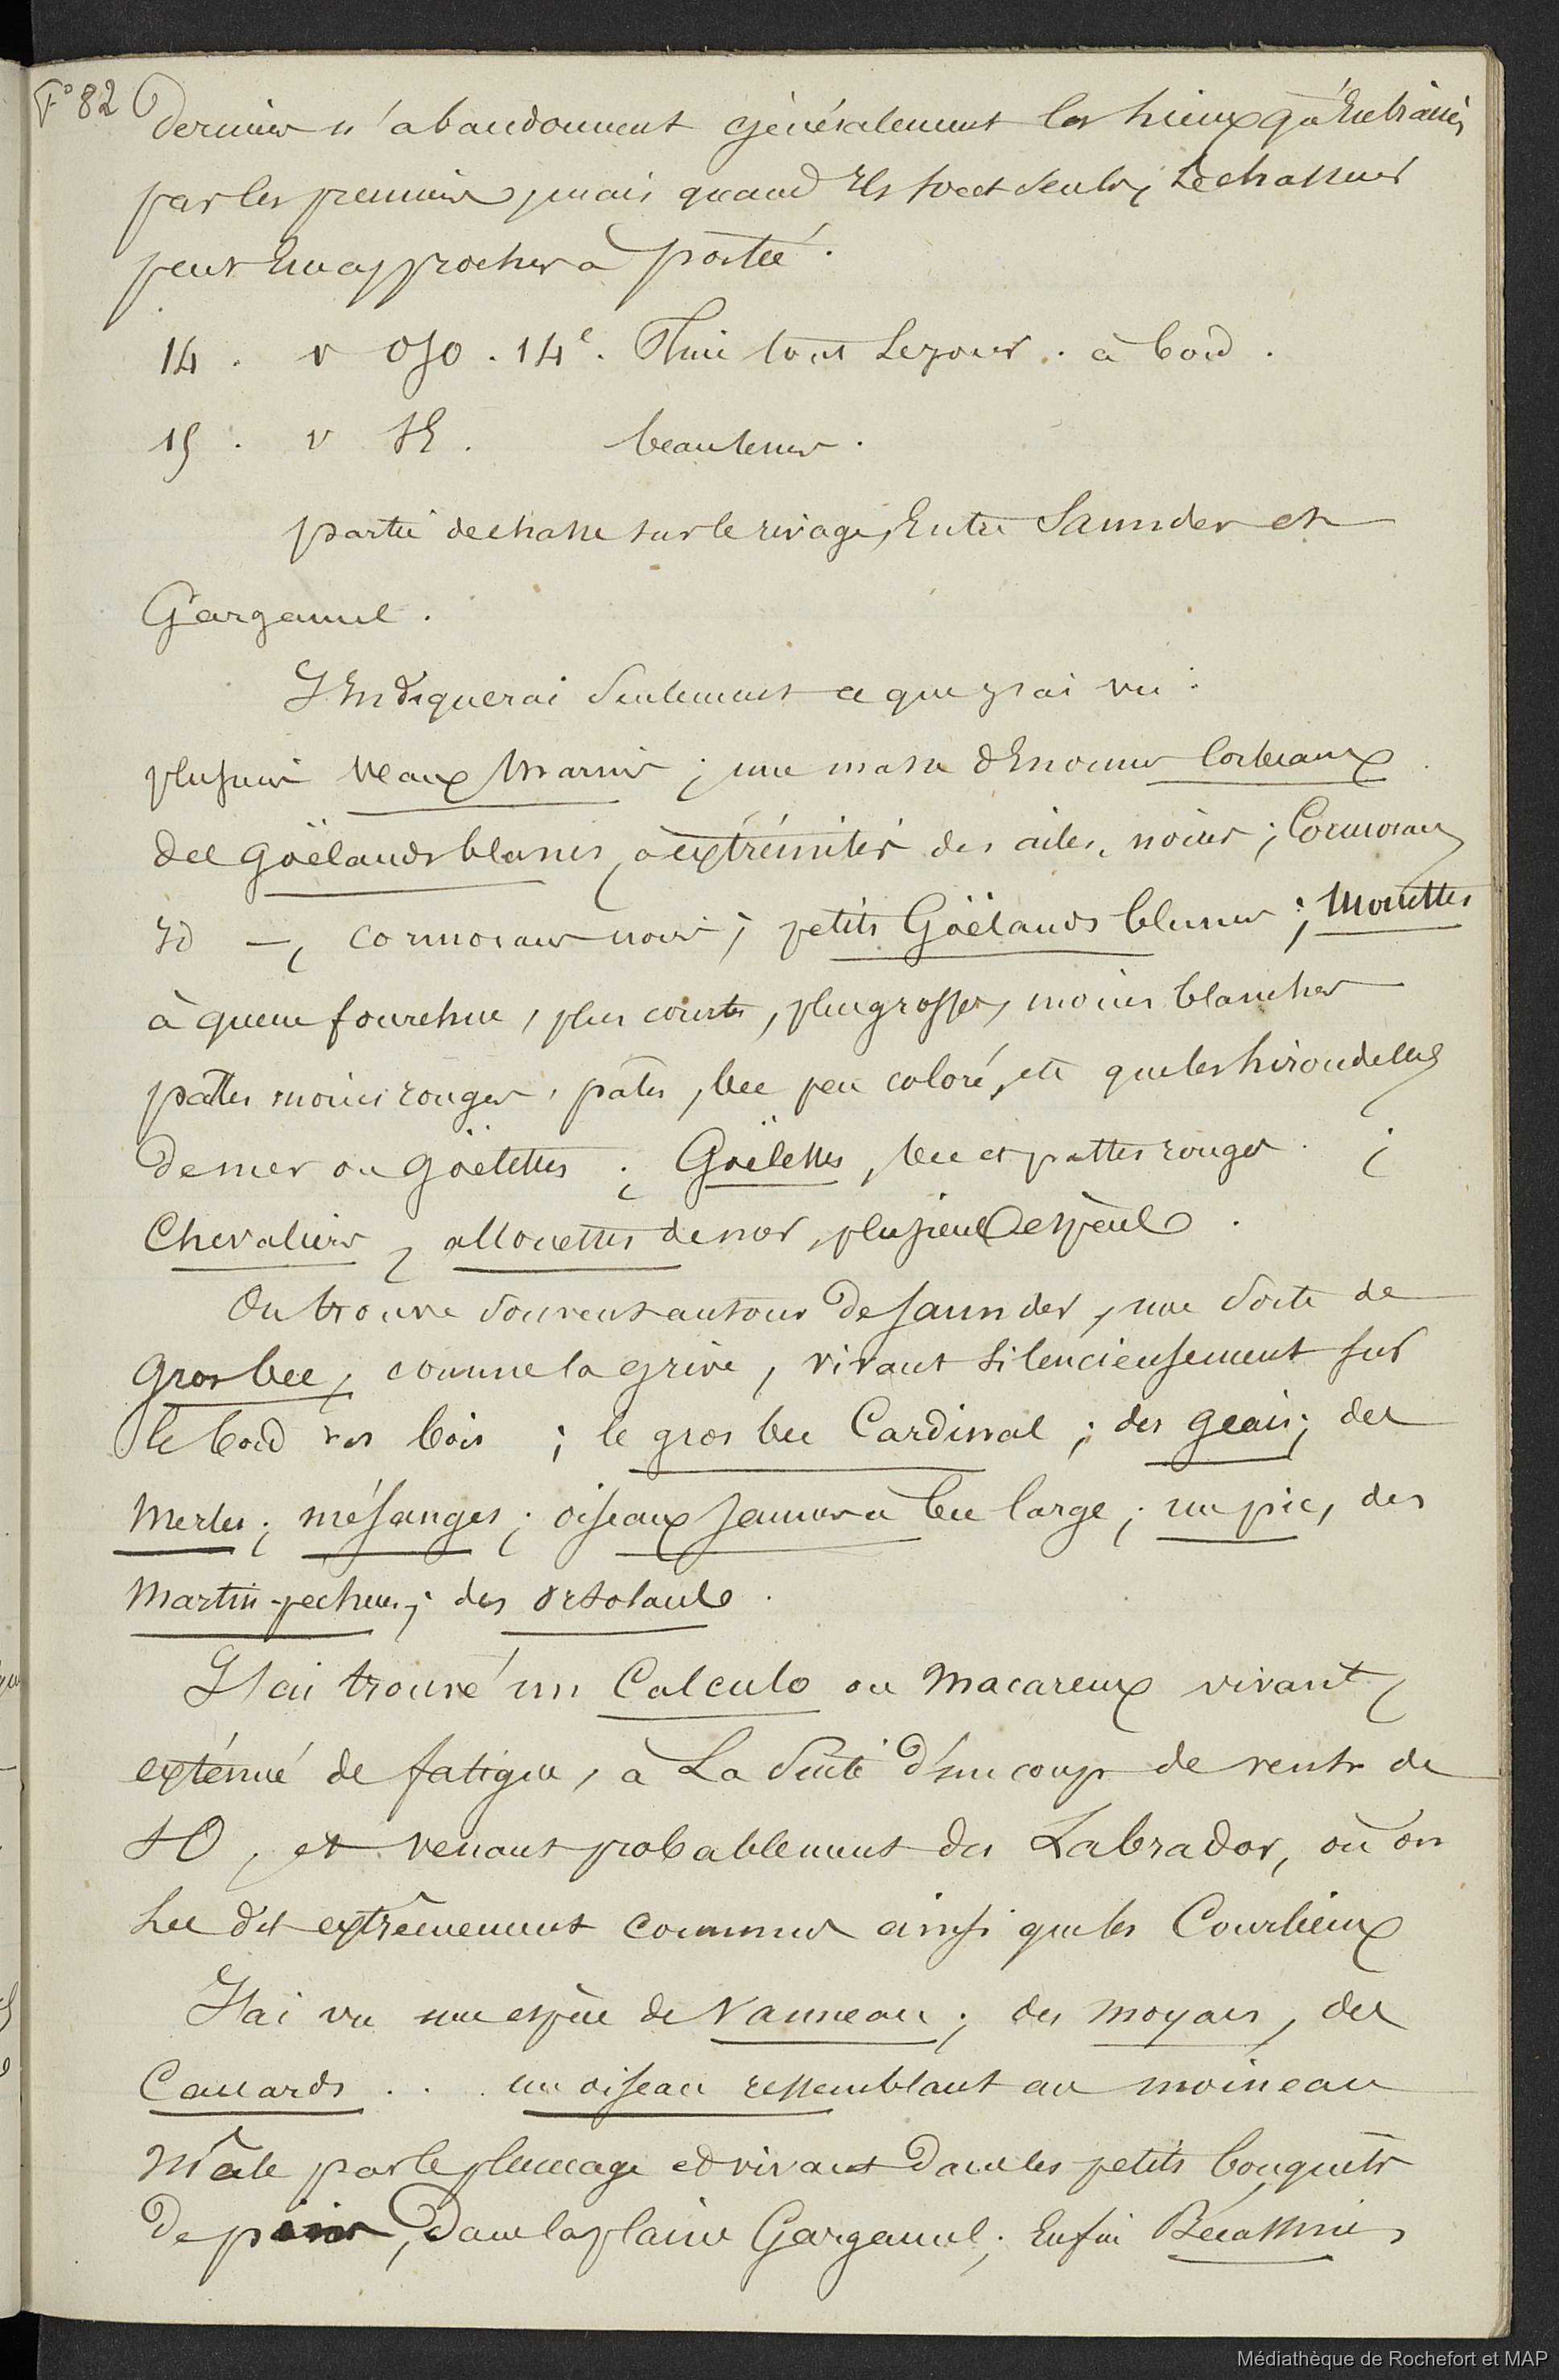 F° 82
derniers n'abandonnent généralement les lieux qu'Entrainés
par les premiers, mais quand Ils sont seuls, Le chasseur
peut En approcher à portée.
14 . v OSO . 14e. Pluie tout Le jour . à bord .
15 . v SE . beau tems .
partie de chasse sur le rivage, Entre Saunder et
Gargamel .
J'Indiquerai seulement ce que j'ai vu :
plusieurs Veaux Marins ; une masse d'Enormes Corbeaux
des Goëlands blancs, à extrémités des ailes, noires ; Cormorans
Id —, cormorans noirs ; petits Goëlands blancs ; Mouettes
à queue fourchue, plus courtes, plus grosses, moins blanches
pattes moins rouges, pâtes, bec peu coloré, etc que les hirondelles
de mer ou Goëlettes ; Goëlettes, bec et pattes rouges . ;
Chevaliers, allouettes de mer, plusieurs espèces .
On trouve souvent autour de Saunder, une sorte de
Gros bec, comme la grive, vivant silencieusement sur
le bord des bois ; le gros bec Cardinal ; des geais ; des
Merles ; mésanges ; oiseaux jaunes à bec large ; un pic, des
Martin-pecheurs ; des ortolans .
J'ai trouvé un Calculo ou Macareux vivant,
exténué de fatigue, à La suite d'un coup de vents de
SO, et venant probablement du Labrador, où on
les dit extrêmement communs ainsi que les Courlieux
J'ai vu une espèce de Vanneau ; des moyacs, des
Canards . . . un oiseau ressemblant au moineau
mâle par le plumage et vivant dans les petits bouquets
de pins, dans la plaine Gargamel ; Enfin Bécassines,
Médiathèque de Rochefort et MAP